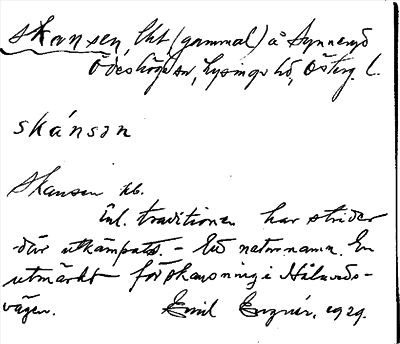 Skansen, lht (gammal) å Synneryd
Ödeshögs sn, Lysings hd, Österg. l.
skánsən
Skansen kb.
Enl. traditionen har strider
där utkämpats. – Ett naturnamn. En
utmärkt förskansning i Hålaveds-
vägen. Emil 1929.